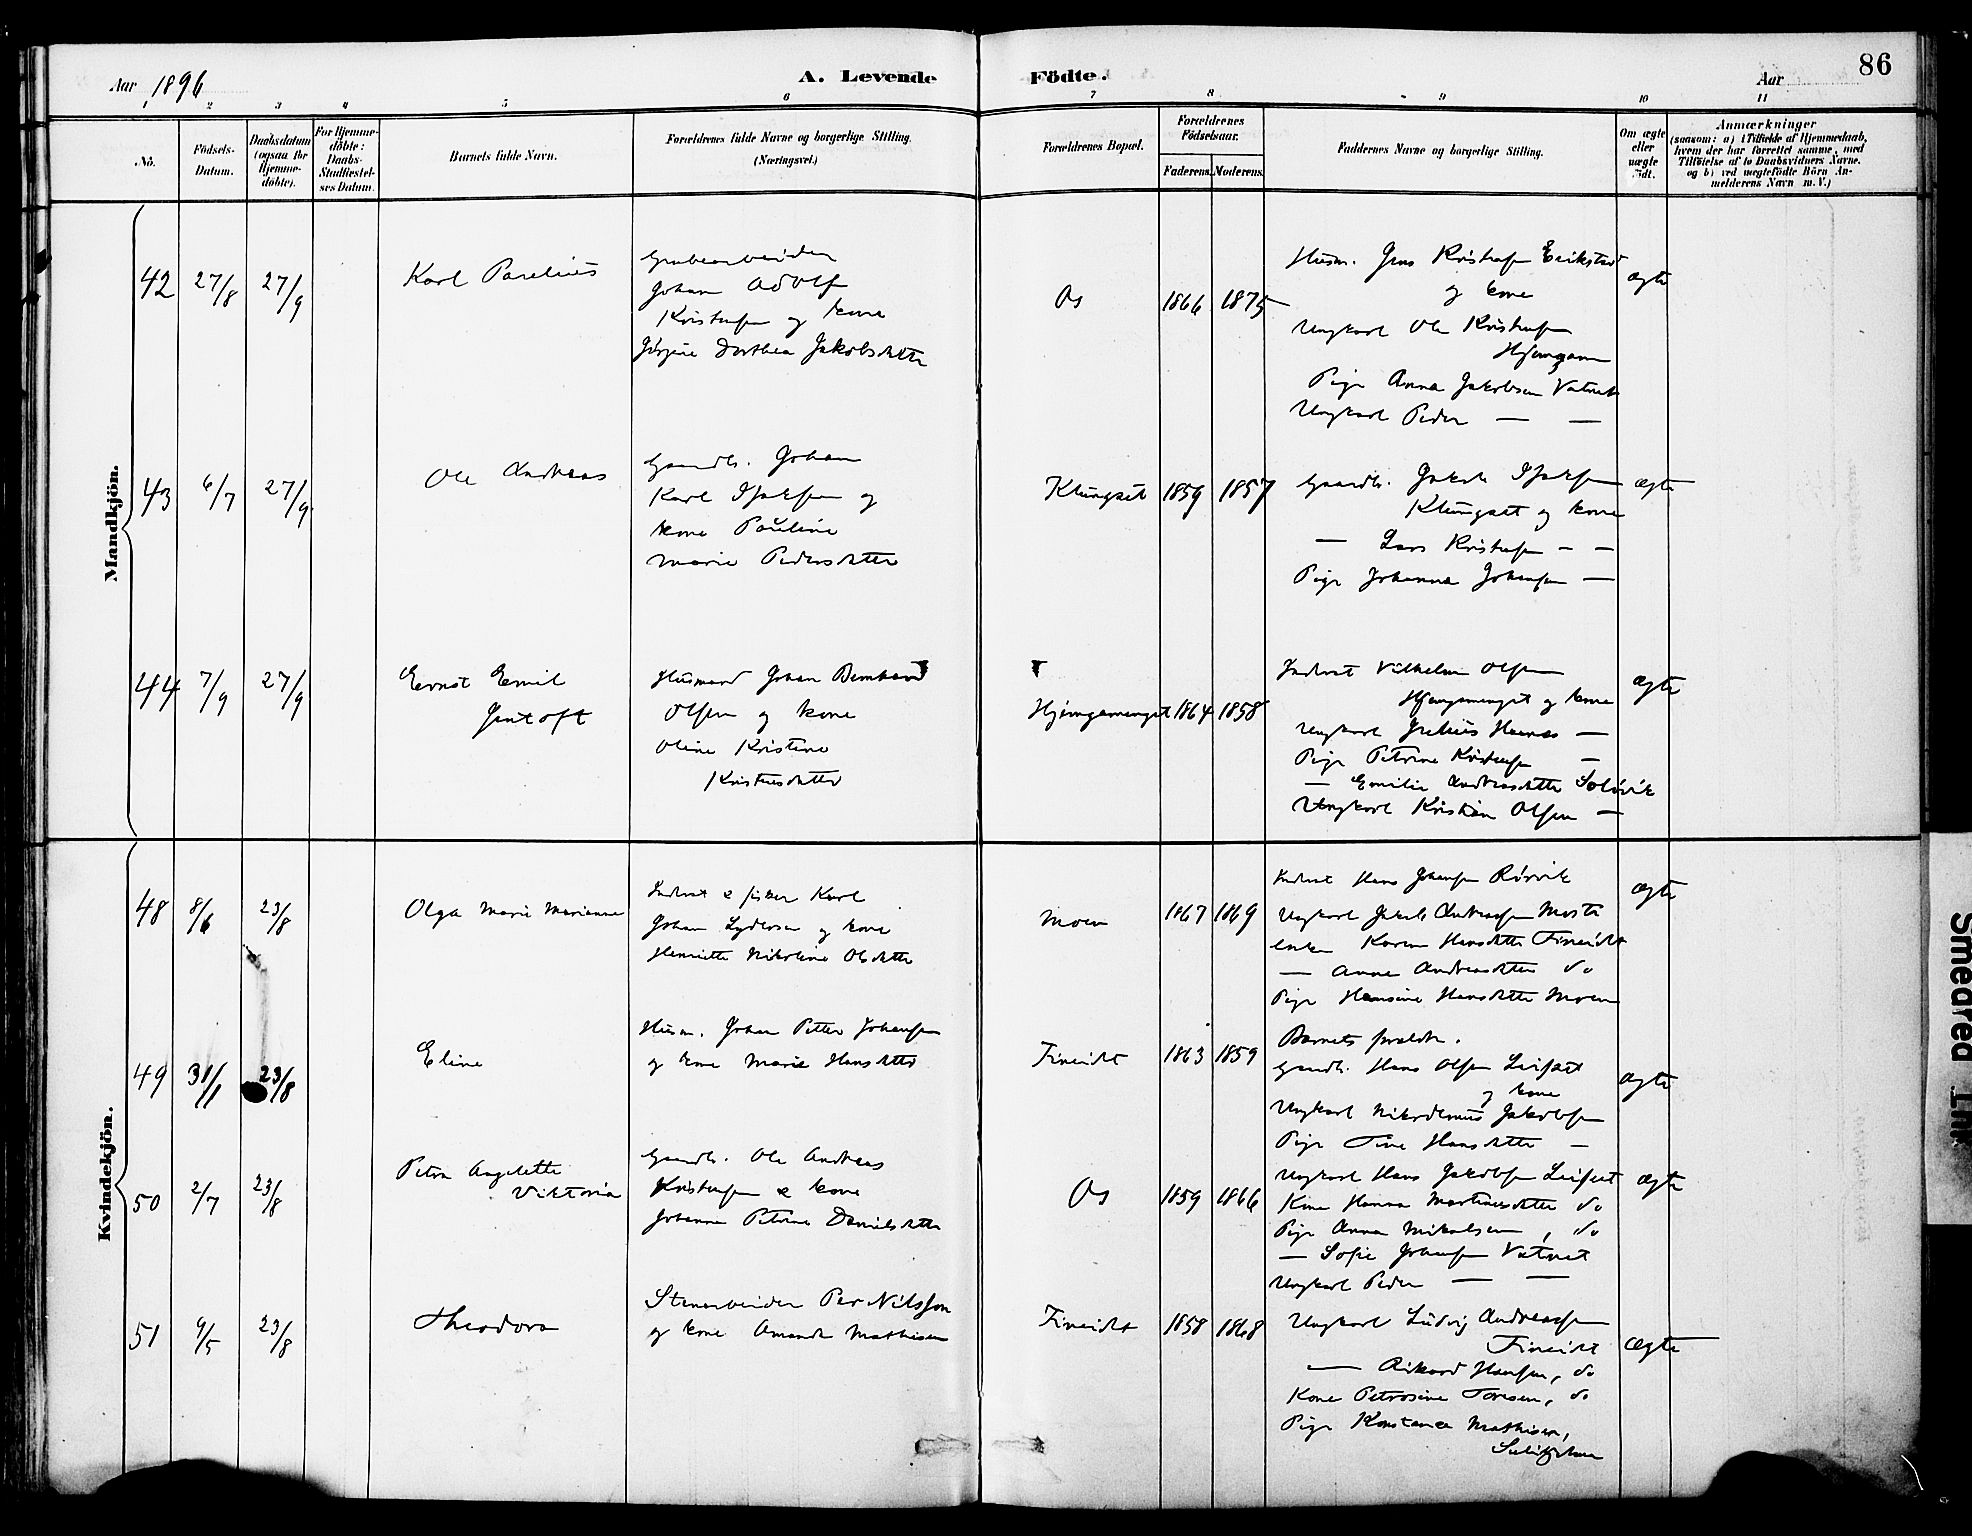 Aar 1896
A. Levende Födte.
Aar
86
2 3 4 5 6 7 8 9 10 11
No.
Födsels-Datum.
Daabsdatum (ogsaa for Hjemme-döbte).
For Hjemme-döbte: Daabs-Stadfæstel-ses Datum.
Barnets fulde Navn.
Forældrenes fulde Navne og borgerlige Stilling.
(Næringsvei.)
Forældrenes Bopæl.
Forældrenes Födselsaar.
Faderens. Moderens.
Faddernes Navne og borgerlige Stilling.
Om ægte eller uægte födt.
Anmærkninger
(saasom: a) i Tilfælde af Hjemmedaab,
hvem der har forrettet samme, med
Tilföielse af to Daabsvidners Navne.
og b) ved uægtefödte Börn An-
melderens Navn m. V.)
Mandkjön.
42 27/8 27/9
Karl Parelius
Grubearbeider
Johan Adolf
Kristensen og kone
Jörgine Dorthea Jakobsdatter
Os 1866 1875
Husm. Jens Kristensen Erikstad
og kone
Ungkarl Ole Kristensen
Pige Anna Jakobsen Vatnet
Ungkarl Peder — —
ægte
43 6/7 27/9
Ole Andreas
Gaardb. Johan
Karl Isaksen og
kone Pauline
Marie Pedersdatter
Klungset 1859 1857
Gaardb. Jakob Isaksen
Klungset og kone
— Lars Kristensen — —
Pige Johanna Johansen —
ægte
44 7/9 27/9
Ernst Emil
Gentoft
Husmand Johan Bernhard
Olsen og kone
Oline Kristine
Kristensdatter
Hjemgamenget 1864 1858
Inderst Vilhelm Olsen
Hjemgamenget og kone
Ungkarl Haenes —
Pige Petrine Kristensen —
— Emilie Andreasdatter Solövik
Ungkarl Kristian Olsen —
ægte
Kvindekjön.
48 8/6 23/8
Olga Marie Marianne
Inderst & fisker Karl
Johan Lydersen og kone
Henriette Nikoline Olsdatter
Moen 1867 1869
Inderst Hans Johansen Rörvik
Ungkarl Jakob Andreassen Moste
enke Karen Hansdatter Fineidet
— Anne Andreasdatter do
Pige Hansine Hansdatter Moen
ægte
49 31/1 23/8
Eline
Husm. Johan Petter Johansen
og kone Marie Hansdatter
Fineidet 1863 1859
Barnets forældre.
Gaardb. Hans Olsen Leifset
og kone
Ungkarl Nikodemus Jakobsen
Pige Tine Hansdatter —
ægte
50 2/7 23/8
Petra Angelette
Viktoria
Gaardb. Ole Andreas
Kristensen & kone
Johanna Petrine Danielsdatter
Os 1859 1866
Ungkarl Hans Jakobsen Leifset
Kone Hanna Martinusdatter do
Pige Anna Mikalsen, do
— Sofie Johansen Vatnet
Ungkarl Peder — —
ægte
51 9/5 23/8
Theodora
Stenarbeider Per Nilsson
og kone Amanda Mathisen
Fineidet 1858 1868
Ungkarl Ludvig Andreassen
Fineidet
— Rikard Hansen, do
Kone Petrosine Toresen, do
Pige Konstance Mathisen,
Sulitjelma
ægte
Smeared Ink